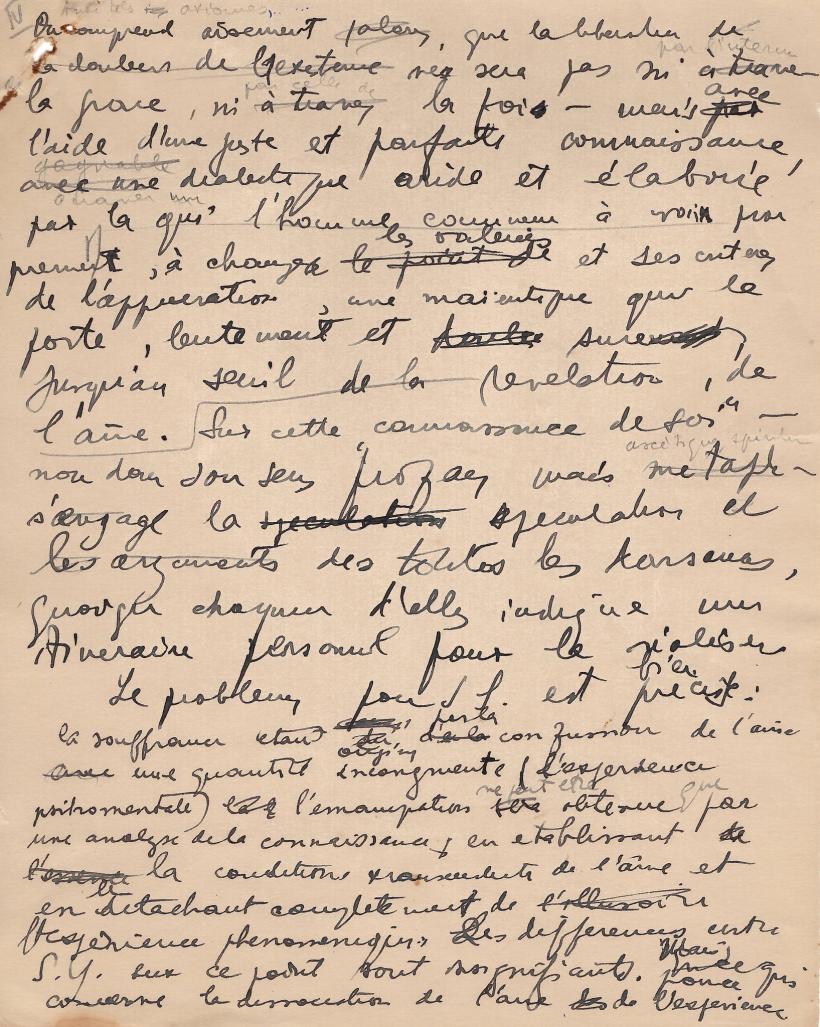 IV
axiomes
On comprend aisement alors, que la liberation de
la douleur de l'existence ne sera pas ni à trave
par l'interm
la grace, ni à travers la foi – mais avec
par celles de
l'aide d'une juste et parfaite connaissance,
avec une dialectique aride et élaborée
par la qui l'homme commun à voir pro
prement, à changer le point de et ses criteres
les valeurs
de l'appreciation, une maieutique qui la
porte, lentement et surement,
jusqu'au seuil de la revelation, de
l'âme. Sur cette "connaissance de soi" –
non dans son sens profane, mais métaph-
ascétique spirituel
s'engage la speculation speculation et
les arguments des toutes les darsanas,
quoique chacune d'elles indique un
itineraire personnel pour le réaliser
Le problème pour S.Y. est bien précis:
la souffrance etant confusion de l'âme
origine
avec une quantité incongruente (l'experience
psihomentale) l'emancipation obtenue par
ne peut être que
une analyse de la connaissance, en etablissant
l'essence la condition transcendente de l'âme et
en le detachant completement de l'illusoire
experience phenomenique. Les differences entre
S.Y. sur ce point sont insignifiants. Mais
concerne la dissociation de l'âme de l'experience